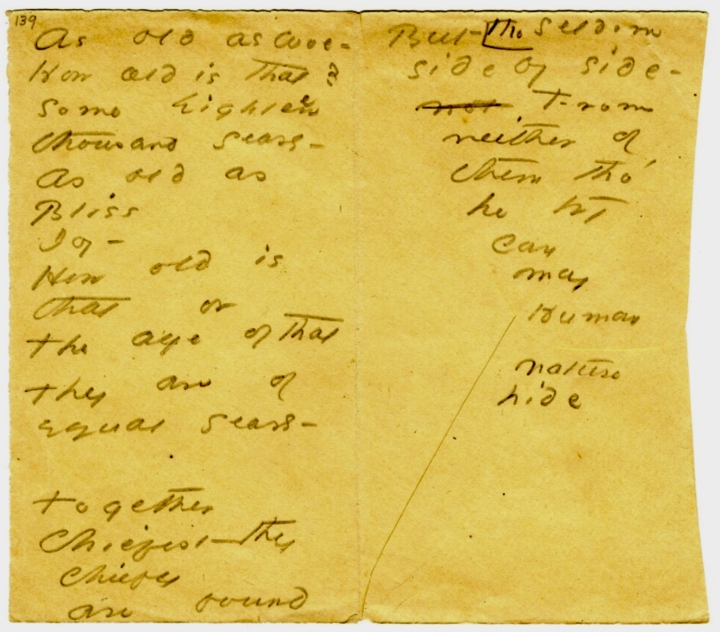 139
As old as Woe -
How old is that?
Some Eighteen
thousand years -
As old as
Bliss
Joy -
How old is
that or
the age of that
they are of
equal years -

Together
Chiefest - they
Chiefly
are found
But - tho seldom
side by side -
not From
neither of
them tho'
he try
Can
may
Human
nature
hide